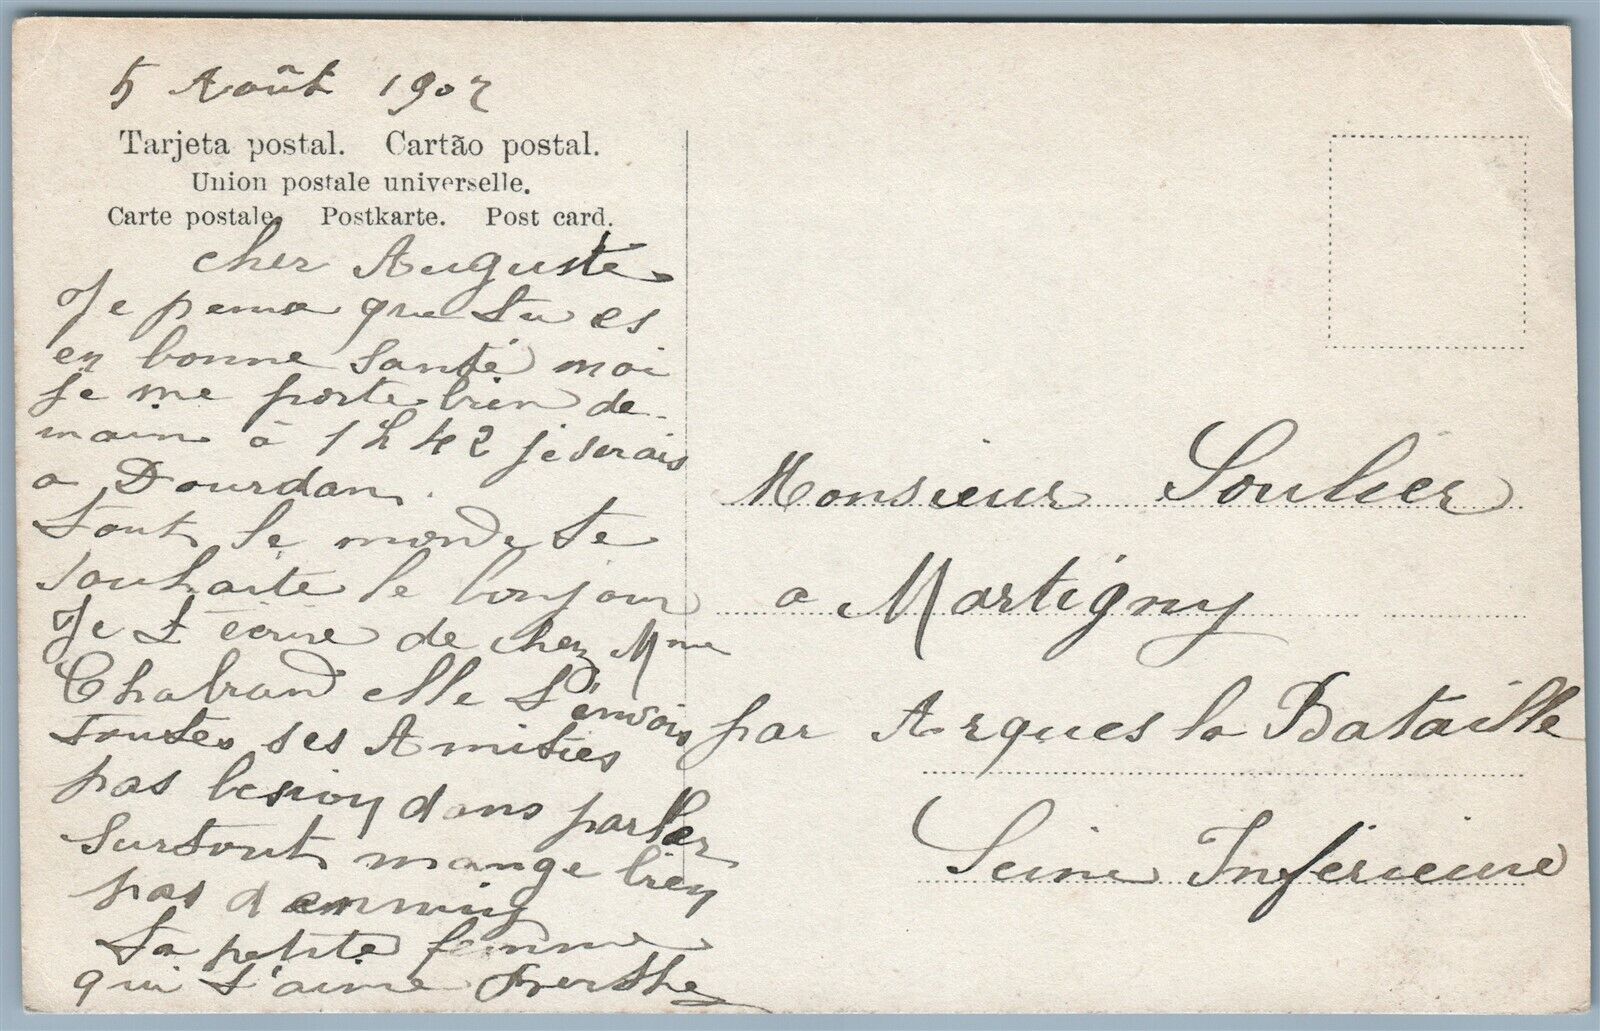 5 Août 1907
Tarjeta postal. Cartão postal.
Union postale universelle.
Carte postale. Postkarte. Post card.
cher Auguste
Je pense que tu es
en bonne santé moi
je me porte bien de-
main à 1 h 42 je serais
a Dourdan.
tout le monde te
souhaite le bonjour
Je t'écrire de chez Mme
Chabrand elle t'envois
toutes ses Amitiés
pas besoin dans parler
surtout mange bien
pas d'ennuis
ta petite femme
qui t'aime Berthe
Monsieur Soulier
a Martigny
par Arques la Bataille
Seine Inférieure